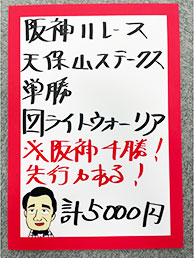 阪神11レース
天保山ステークス
単勝
図ライトウォーリア
※阪神4勝!
先行力ある!
計5000円